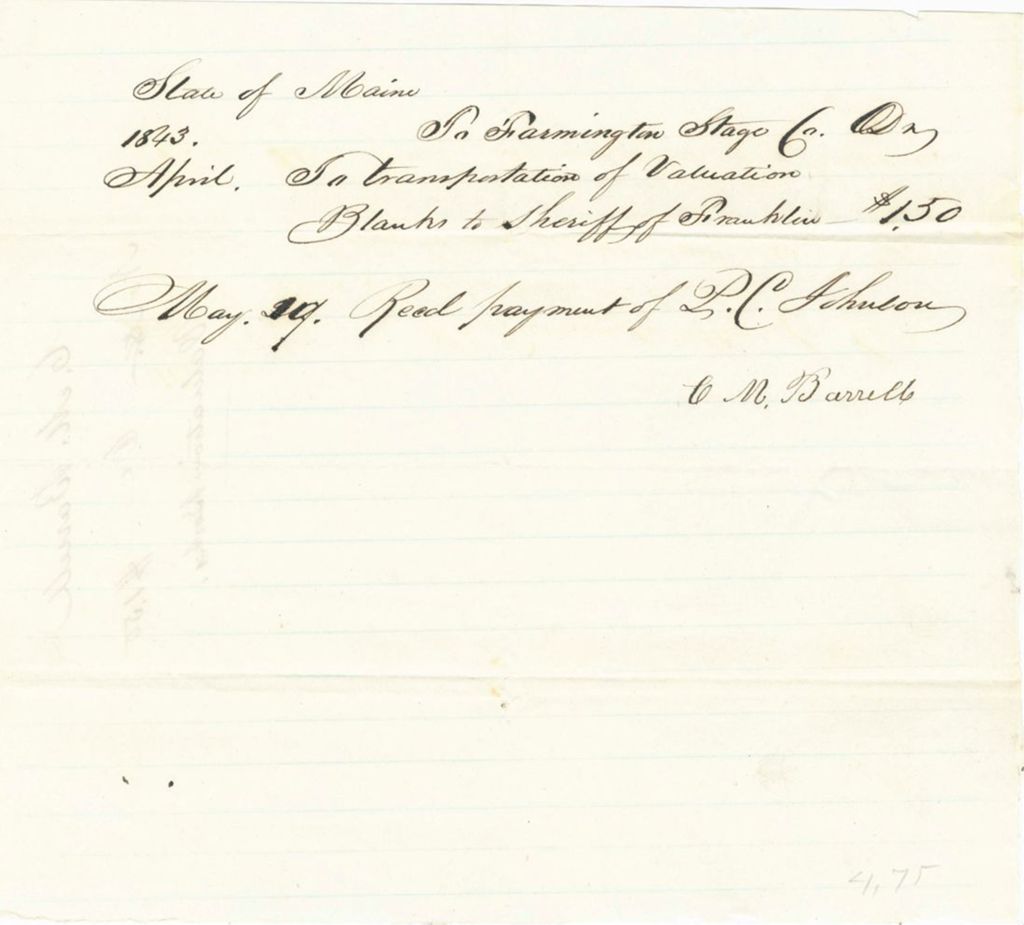 State of Maine
1843. To Farmington Stage Co. Dr
April. To transportation of Valuation
Blanks to Sheriff of Franklin $1,50
May. Recd payment of P. C. Johnson
C M. Barrell
4,75